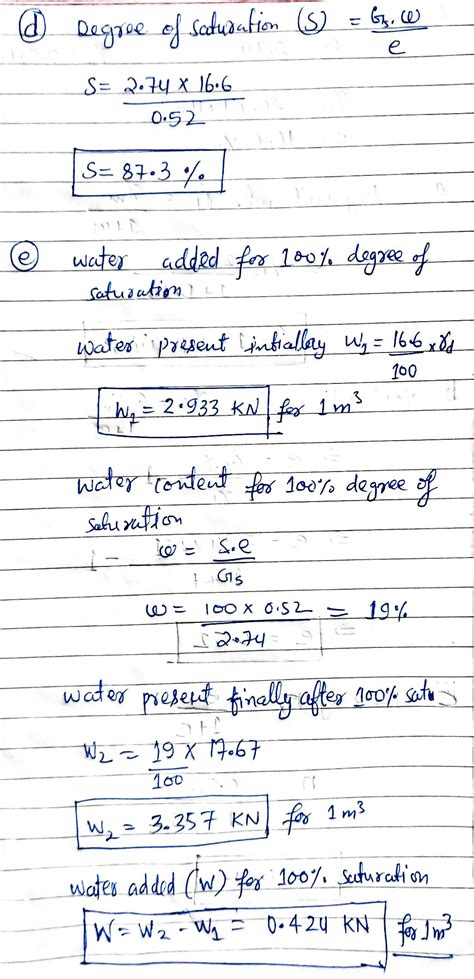 (d) Degree of saturation (S) = Gs.ω / e
S = 2.74 x 16.6 / 0.52
S = 87.3 %
(e) water added for 100% degree of
saturation
water present intiallay W1 = 16.6 / 100 x γd
W1 = 2.933 KN for 1 m³
water content for 100% degree of
saturation
ω = S.e / Gs
ω = 100 x 0.52 / 2.74 = 19%
water present finally after 100% satu
W2 = 19 x 17.67 / 100
W2 = 3.357 KN for 1 m³
water added (W) for 100% saturation
W = W2 - W1 = 0.424 KN for 1m³